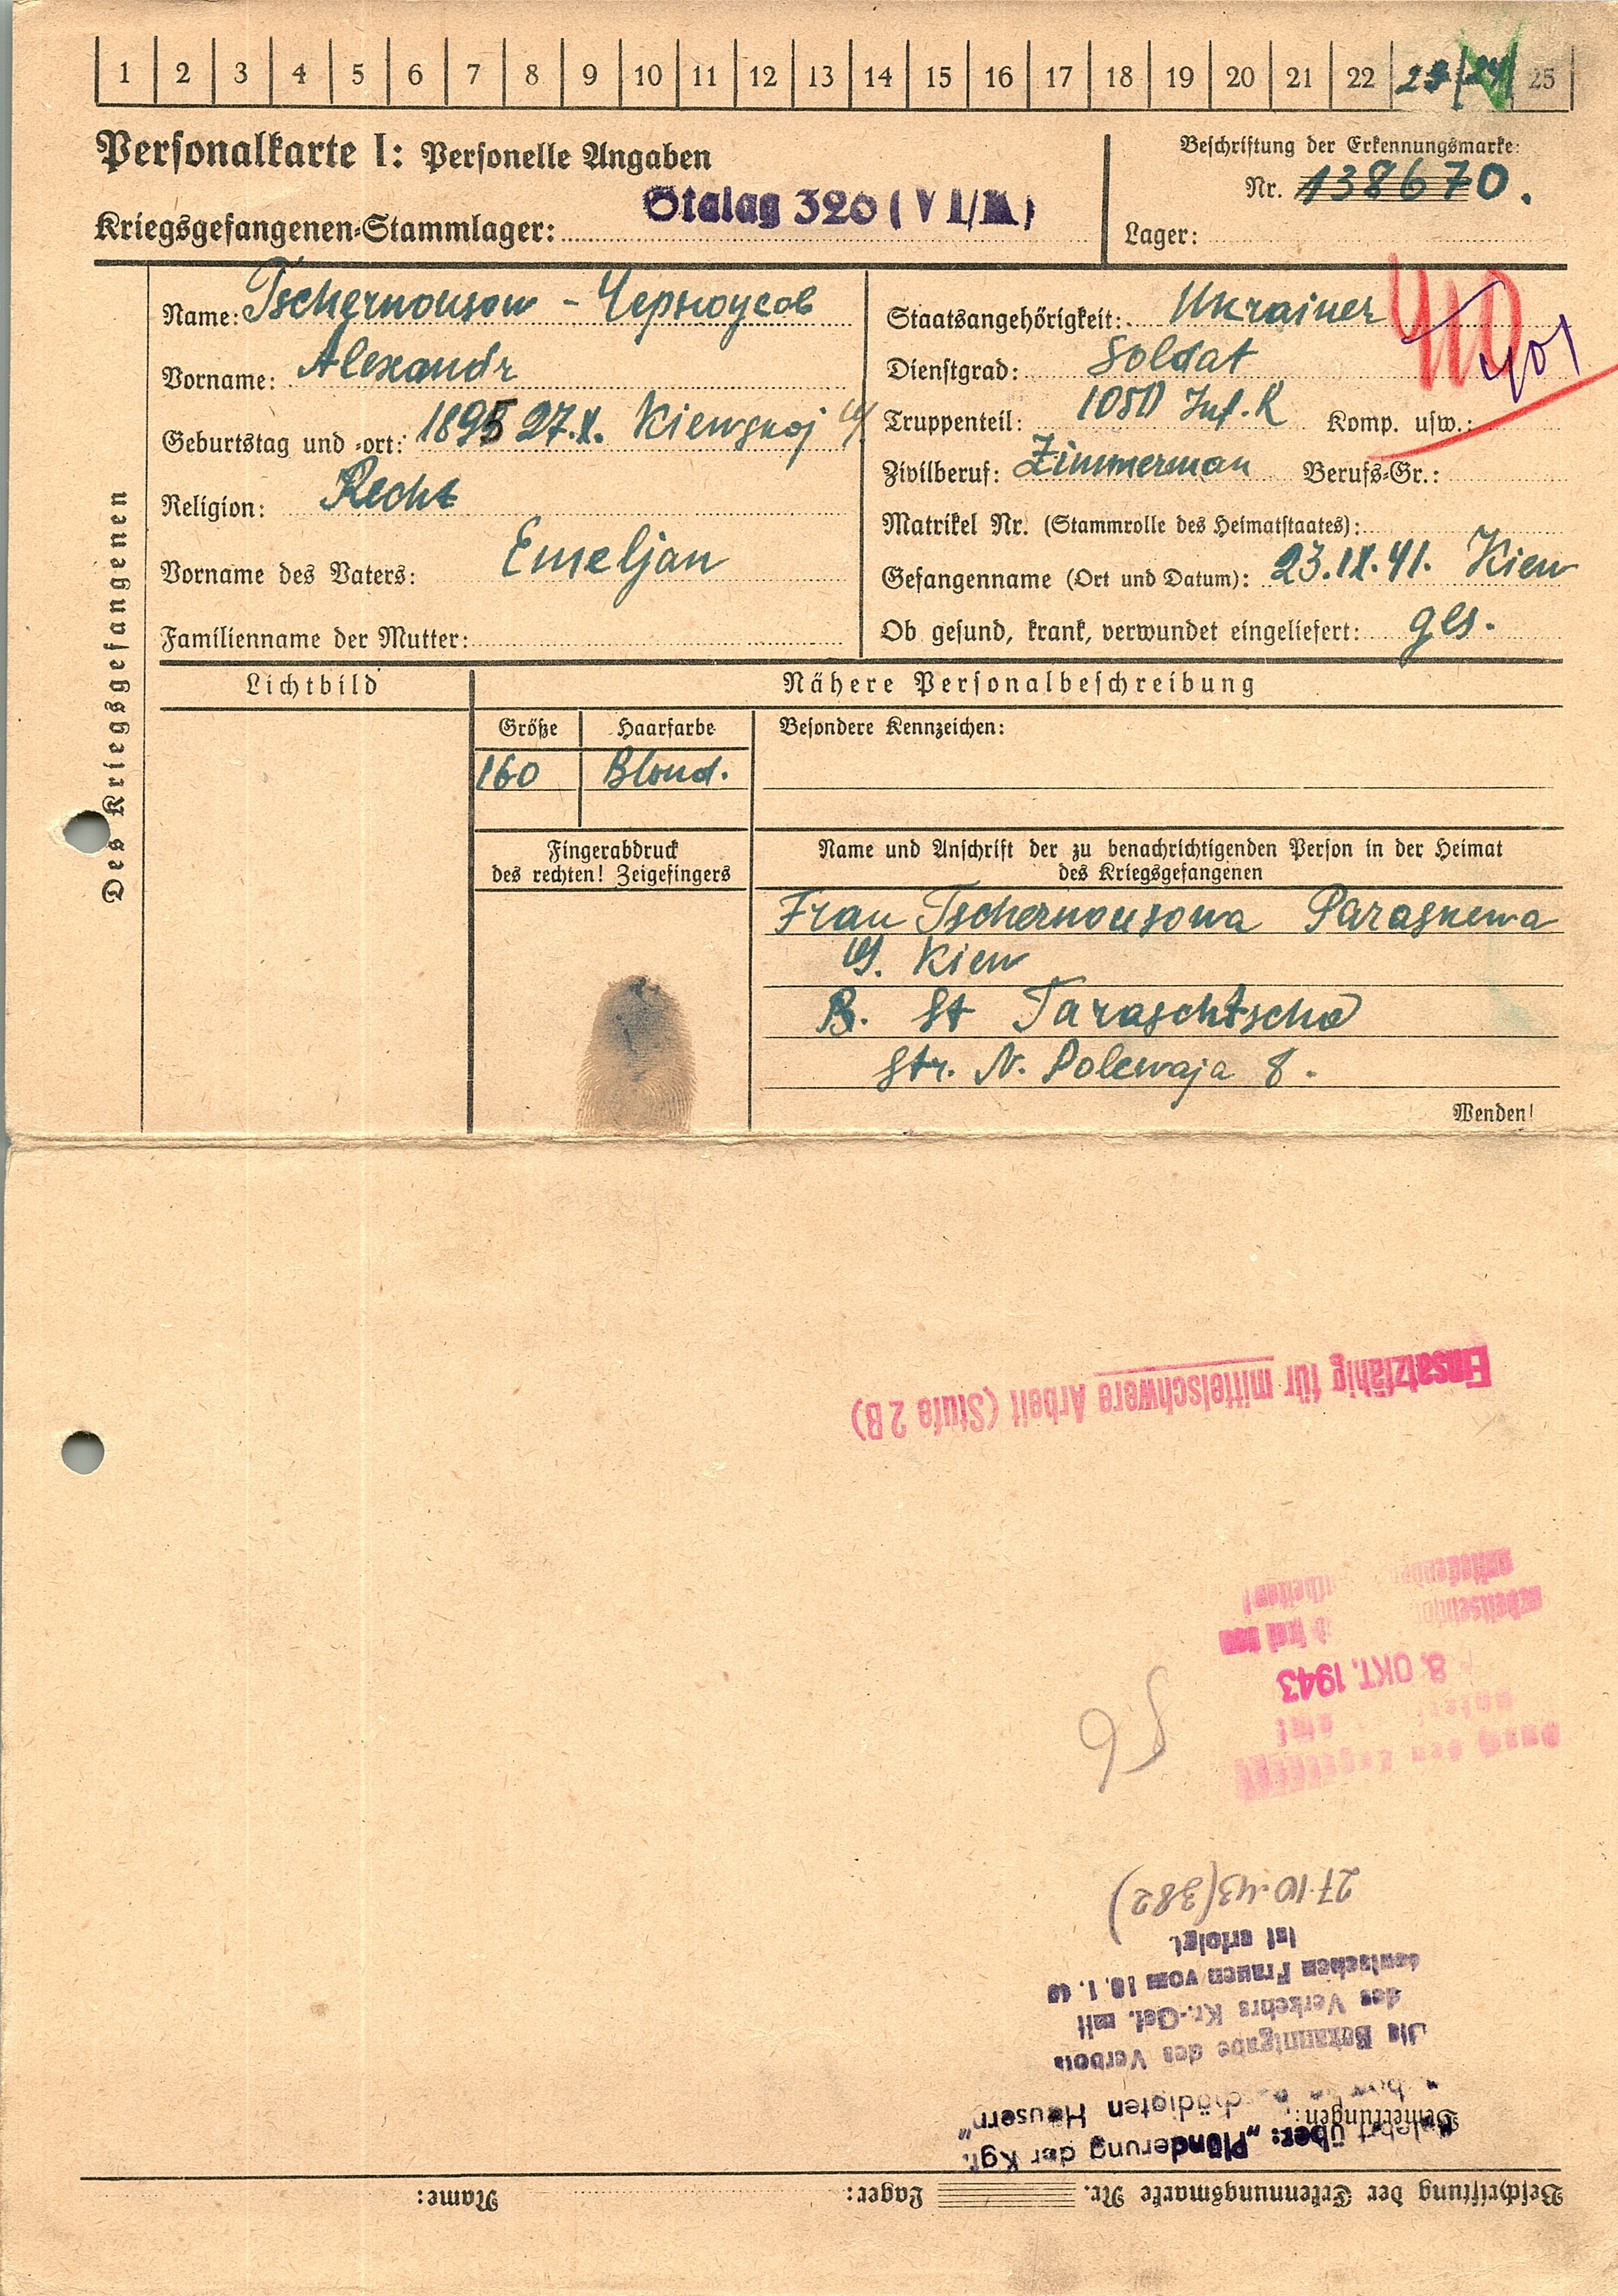 1 2 3 4 5 6 7 8 9 10 11 12 13 14 15 16 17 18 19 20 21 22 23 24 25
Personalkarte I: Personelle Angaben
Kriegsgefangenen-Stammlager: Stalag 320 (VI/K)
Beschriftung der Erkennungsmarke:
Nr. 138670.
Lager:
Des Kriegsgefangenen
Name: Tschernousow - Черноусов
Vorname: Alexandr
Geburtstag und -ort: 1895 27.X. Kiewskoj
Religion: Recht
Vorname des Vaters: Emeljan
Familienname der Mutter:
Staatsangehörigkeit: Ukrainer
410
401
Dienstgrad: Soldat
Truppenteil: 1050 Inf. R Komp. usw.:
Zivilberuf: Zimmerman Berufs-Gr.:
Matrikel Nr. (Stammrolle des Heimatstaates):
Gefangenname (Ort und Datum): 23.IX.41. Kiew
Ob gesund, krank, verwundet eingeliefert: ges.
Lichtbild
Nähere Personalbeschreibung
Größe Haarfarbe
160 Blond.
Besondere Kennzeichen:
Fingerabdruck
des rechten! Zeigefingers
Name und Anschrift der zu benachrichtigenden Person in der Heimat
des Kriegsgefangenen
Frau Tschernousowa Paraskewa
G. Kiew
R. St Taraschtscha
Str. N. Polewaja 8.
Wenden!
Beschriftung der Erkennungsmarke Nr. Lager: Name:
Bemerkungen:
Belehrt über: „Plünderung der Kgf.
beschädigten Häusern"
Die Bekanntgabe des Verbots
des Verkehrs Kr.-Gef. mit
deutschen Frauen vom 10. 1. 40
ist erfolgt.
27.10.43 (382)
56
Durch den
8. OKT. 1943
frei von
Einsatzfähig für mittelschwere Arbeit (Stufe 2 B)